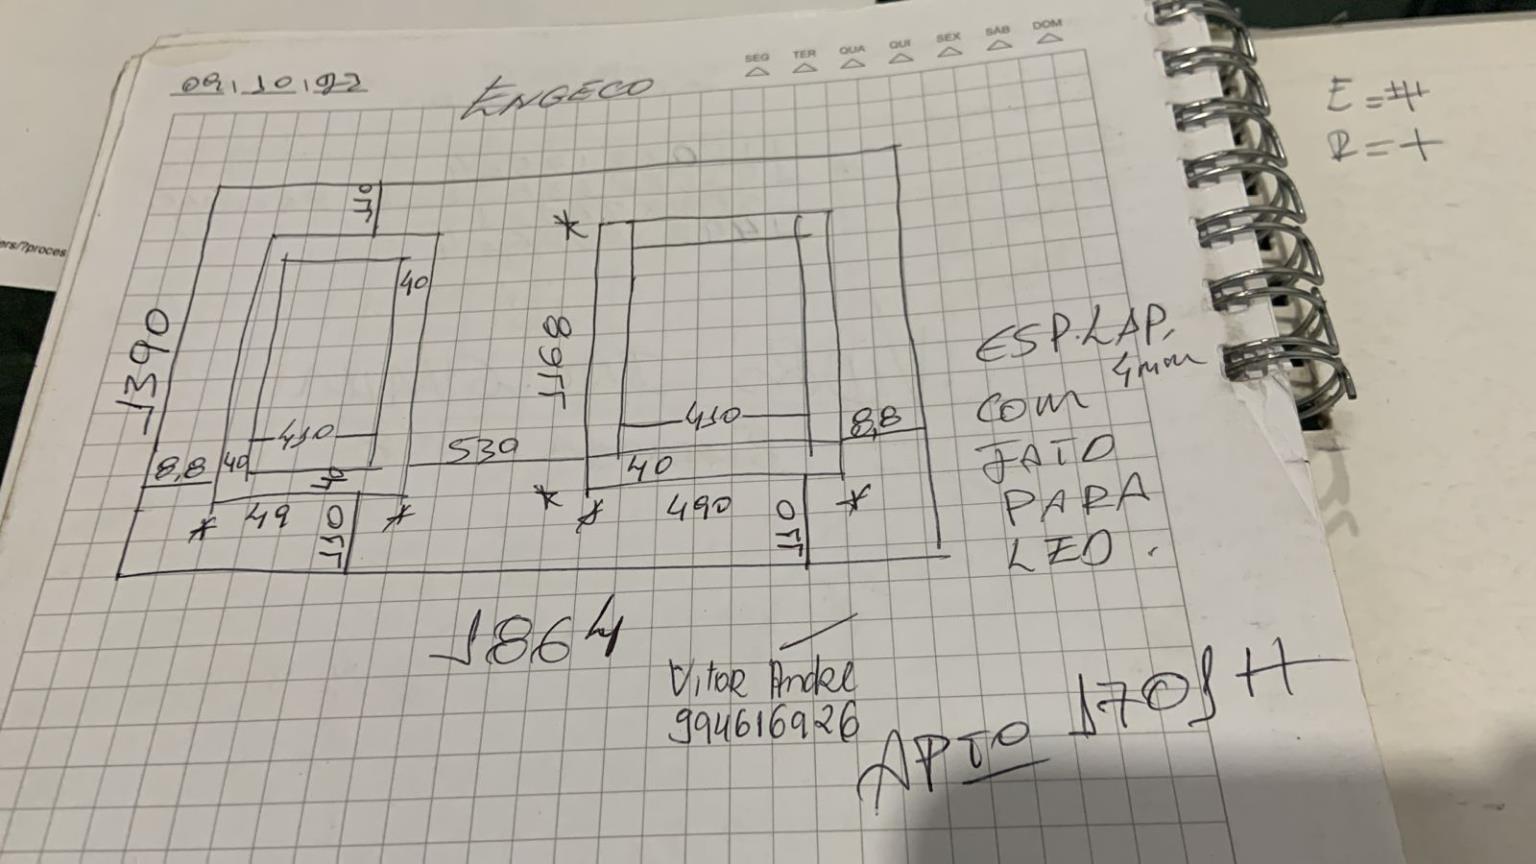 SEG TER QUA QUI SEX SAB DOM
09.10.92
ENGECO
E = #
R = +
110
40
1390
1168
ESP. LAP. 4mm
COM
JATO
PARA
LED.
410
410
8,8
8,8
530
40
40
40
49
490
110
110
1864
Vitor Andre
994616926
APTO 1701 H
ers/?proces